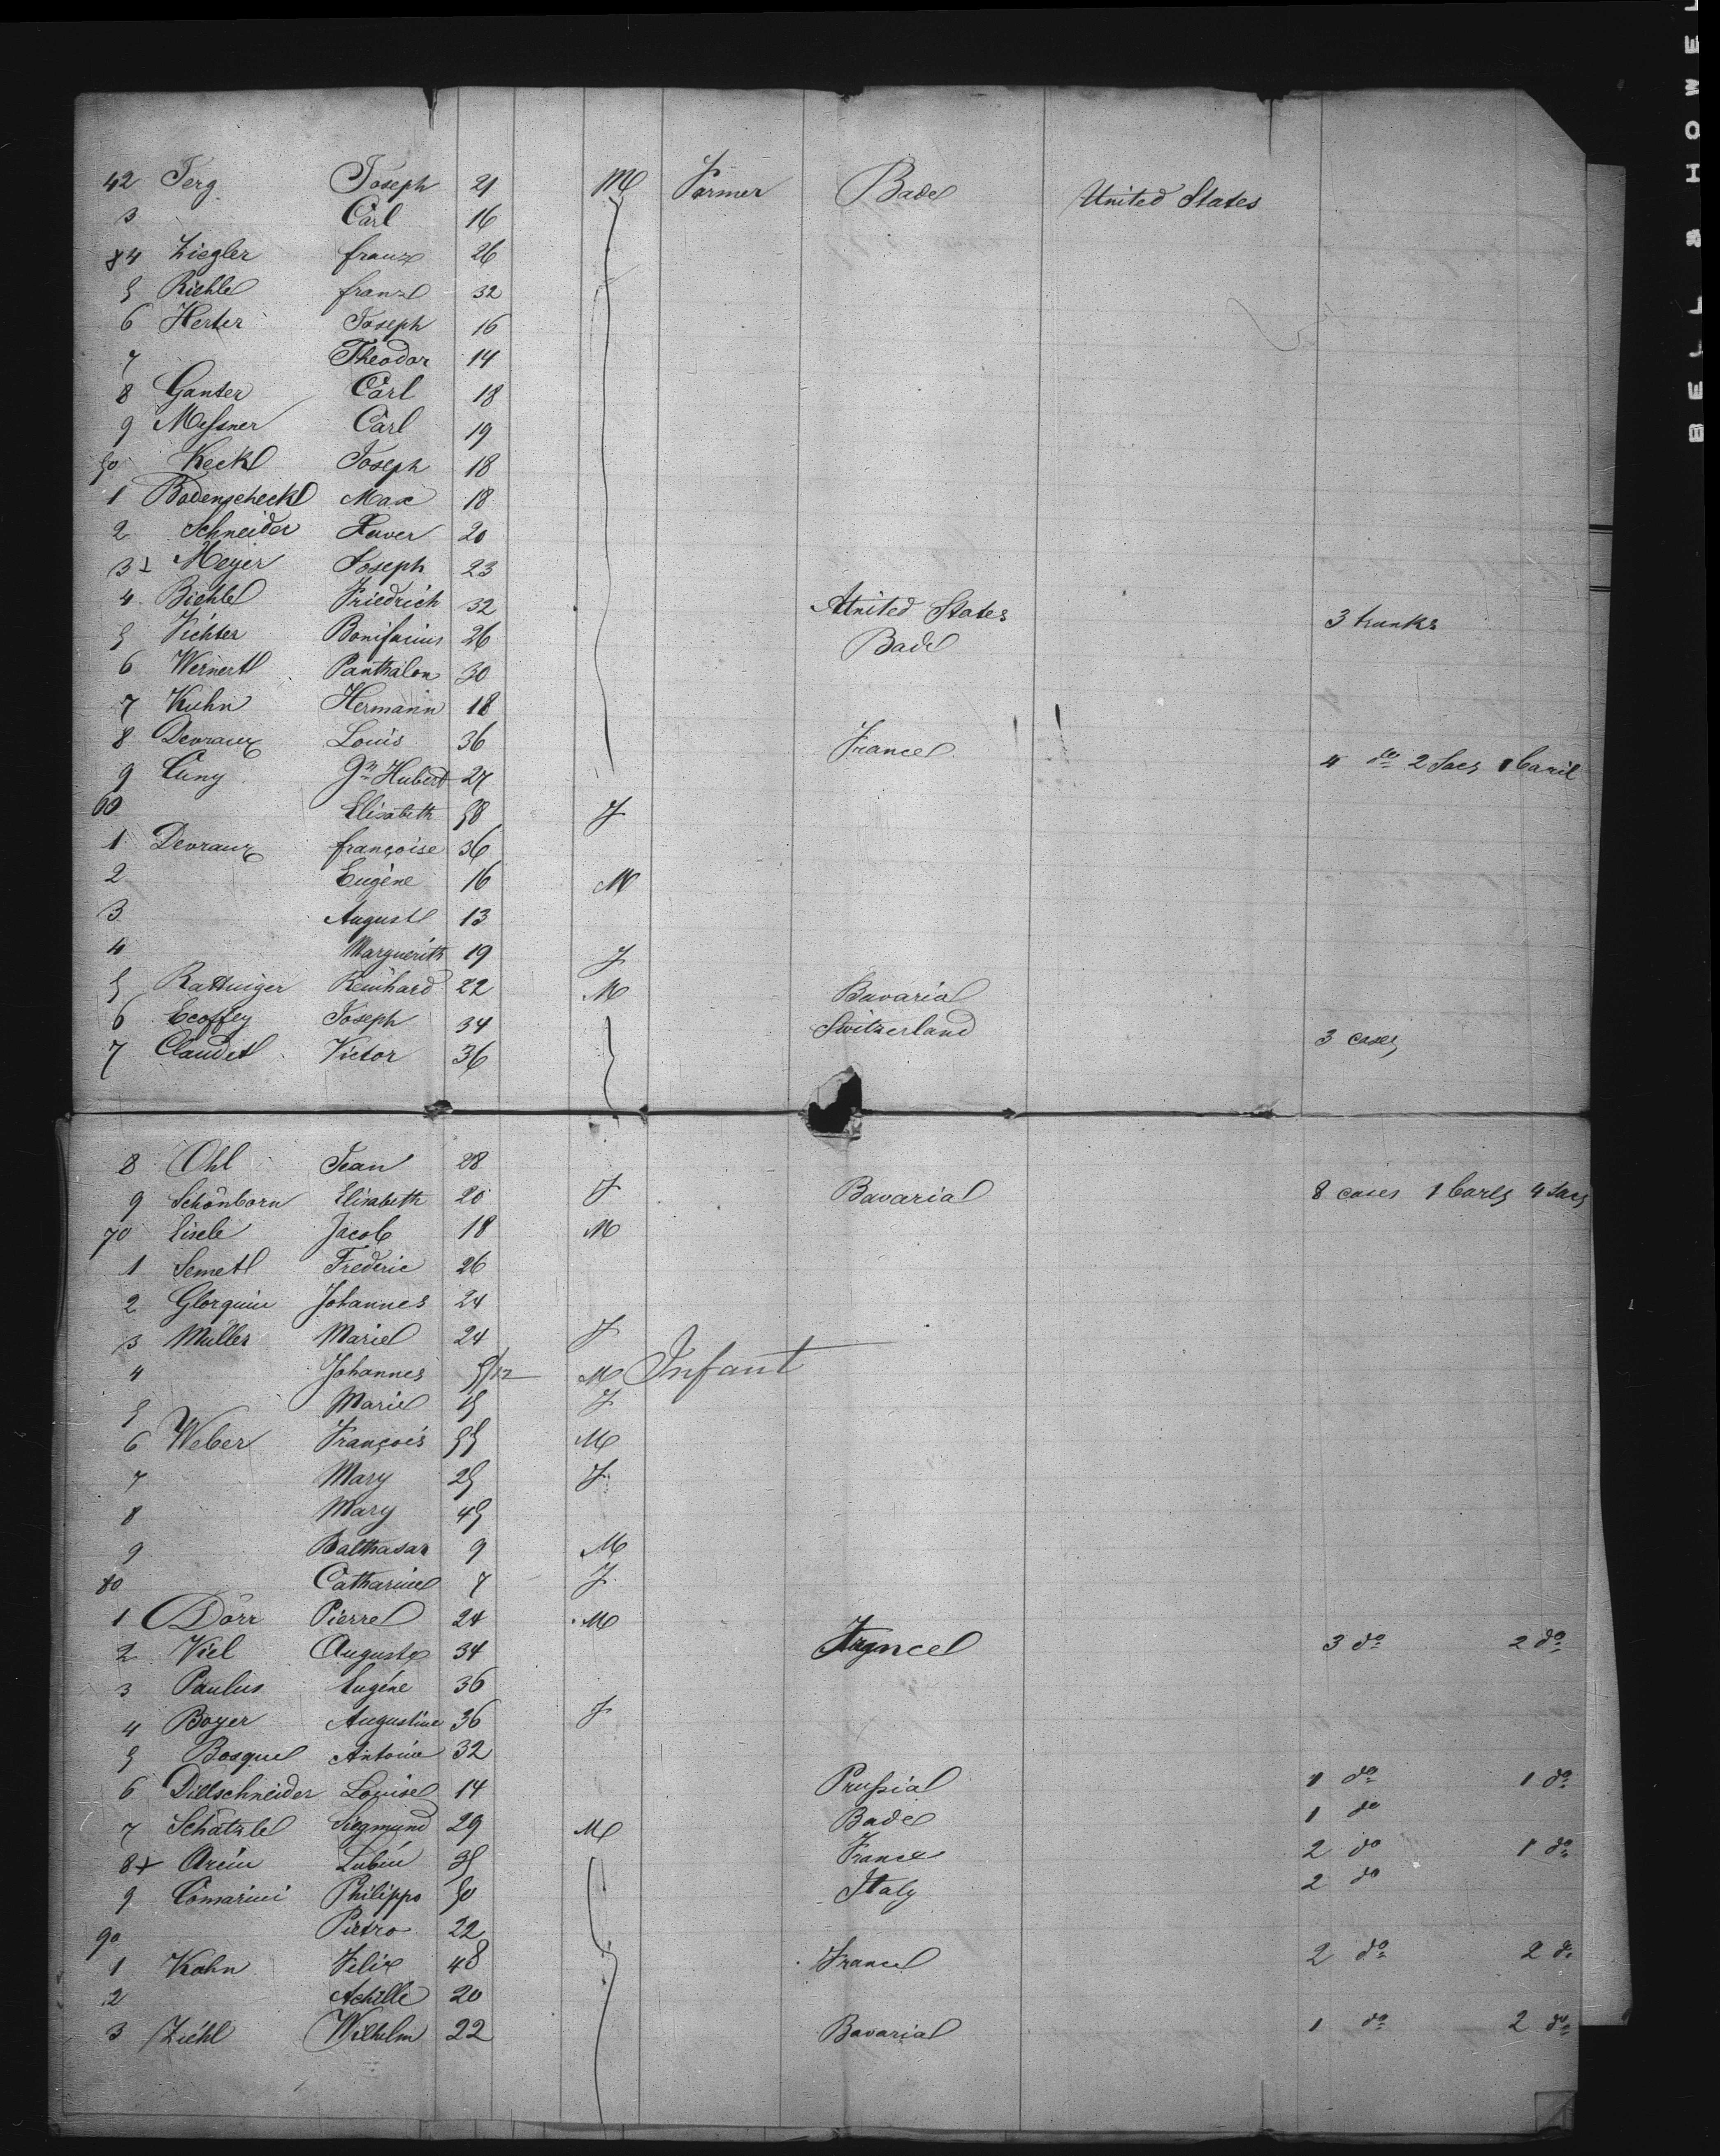 42 Terg Joseph 21 M Farmer Bade United States
3 Carl 16
84 Ziegler franz 26
5 Riehle franz 32
6 Herter Joseph 16
7 Theodor 14
8 Ganter Carl 18
9 Messner Carl 19
50 Keck Joseph 18
1 Bodenscheck Max 18
2 Schneider Xaver 20
3 Meyer Joseph 23
4 Biehle Friedrich 32 United States 3 trunks
5 Vichter Bonifacius 26 Bade
6 Wernert Panthalon 30
7 Kuhn Hermann 18
8 Devraux Louis 36 France
9 Cuny Jn Hubert 27 4 do 2 Sacs 1 baril
60 Elisabeth 58 F
1 Devraux françoise 36
2 Eugène 16 M
3 August 13
4 Marguerith 19 F
5 Rattinger Reinhard 22 M Bavaria
6 Ecoffey Joseph 34 Switzerland
7 Claudet Victor 36 3 cases
8 Ohl Jean 28
9 Schönborn Elisabeth 20 F Bavaria 8 cases 1 barls 4 sacs
70 Eisele Jacob 18 M
1 Semet Frederic 26
2 Glorquin Johannes 24
3 Muller Marie 24 F
4 Johannes 5/12 M Infant
5 Marie 15 F
6 Weber François 55 M
7 Mary 25 F
8 Mary 45
9 Balthasar 9 M
80 Catharine 7 F
1 Dörr Pierre 24 M
2 Viel Auguste 34 France 3 do 2 do
3 Paulus Eugéne 36
4 Boyer Augustine 36 F
5 Bosque Antoine 32
6 Dillschneider Louise 14 Prussia 1 do 1 do
7 Schätzle Siegmund 29 M Bade 1 do
8 Arcin Lubin 35 France 2 do 1 do
9 Comarini Philippo 50 Italy 2 do
90 Pietro 22
1 Kahn Felix 48 France 2 do 2 do
2 Achille 20
3 Ziehl Wilhelm 22 Bavaria 1 do 2 do
BELL & HOWEL